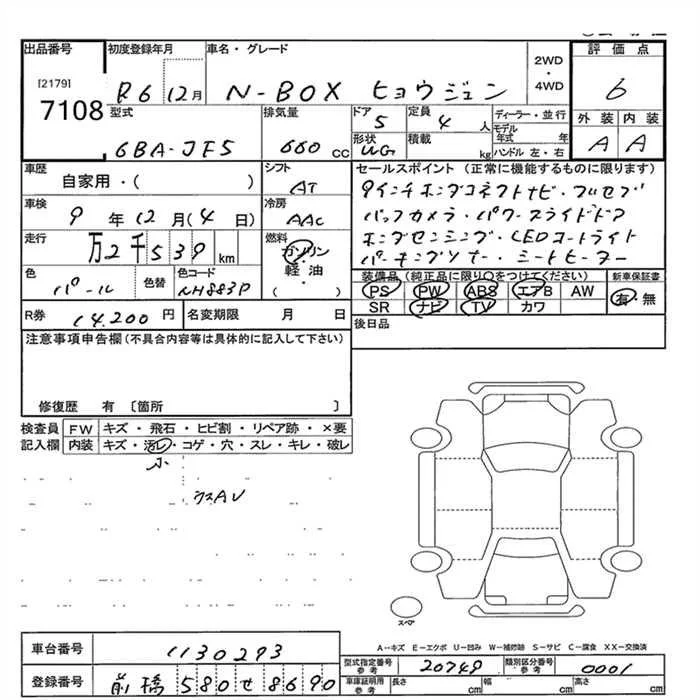 出品番号 初度登録年月 車名・グレード 2WD・4WD 評価点
[2179]
7108 R6 12月 N-BOX ヒョウジュン 6
型式 排気量 ドア 5 定員 4人 ディーラー・並行 外装 内装
6BA-JF5 660cc 形状 UG 積載 kg モデル年式 年 ハンドル 左・右 A A
車歴 シフト セールスポイント(正常に機能するものに限ります)
自家用・( ) AT 9インチホンダコネクトナビ・フルセグ
車検 冷房 バックカメラ・パワースライドドア
9年12月(4日) AAC ホンダセンシング・LEDコートライト
走行 燃料 パーキングソナー・シートヒーター
万2千539km ガソリン・軽油・( )
色 色替 色コード 装備品(純正品に限り〇をつけてください) 新車保証書
パール NH883P PS PW ABS エアB AW 有・無
SR ナビ TV カワ
R券 14,200円 名変期限 月 日 後日品
注意事項申告欄(不具合内容等は具体的に記入して下さい)
修復歴 有〔箇所 〕
検査員 FW キズ・飛石・ヒビ割・リペア跡・×要
記入欄 内装 キズ・汚レ・コゲ・穴・スレ・キレ・破レ
小
ウスAU
スペア
A-キズ E-エクボ U-凹み W-補修跡 S-サビ C-腐食 XX-交換済
車台番号 1130293 型式指定番号 参考 20749 類別区分番号 参考 0001
登録番号 前橋 580 せ 8690 車庫証明用 参考 長さ cm 幅 cm 高さ cm